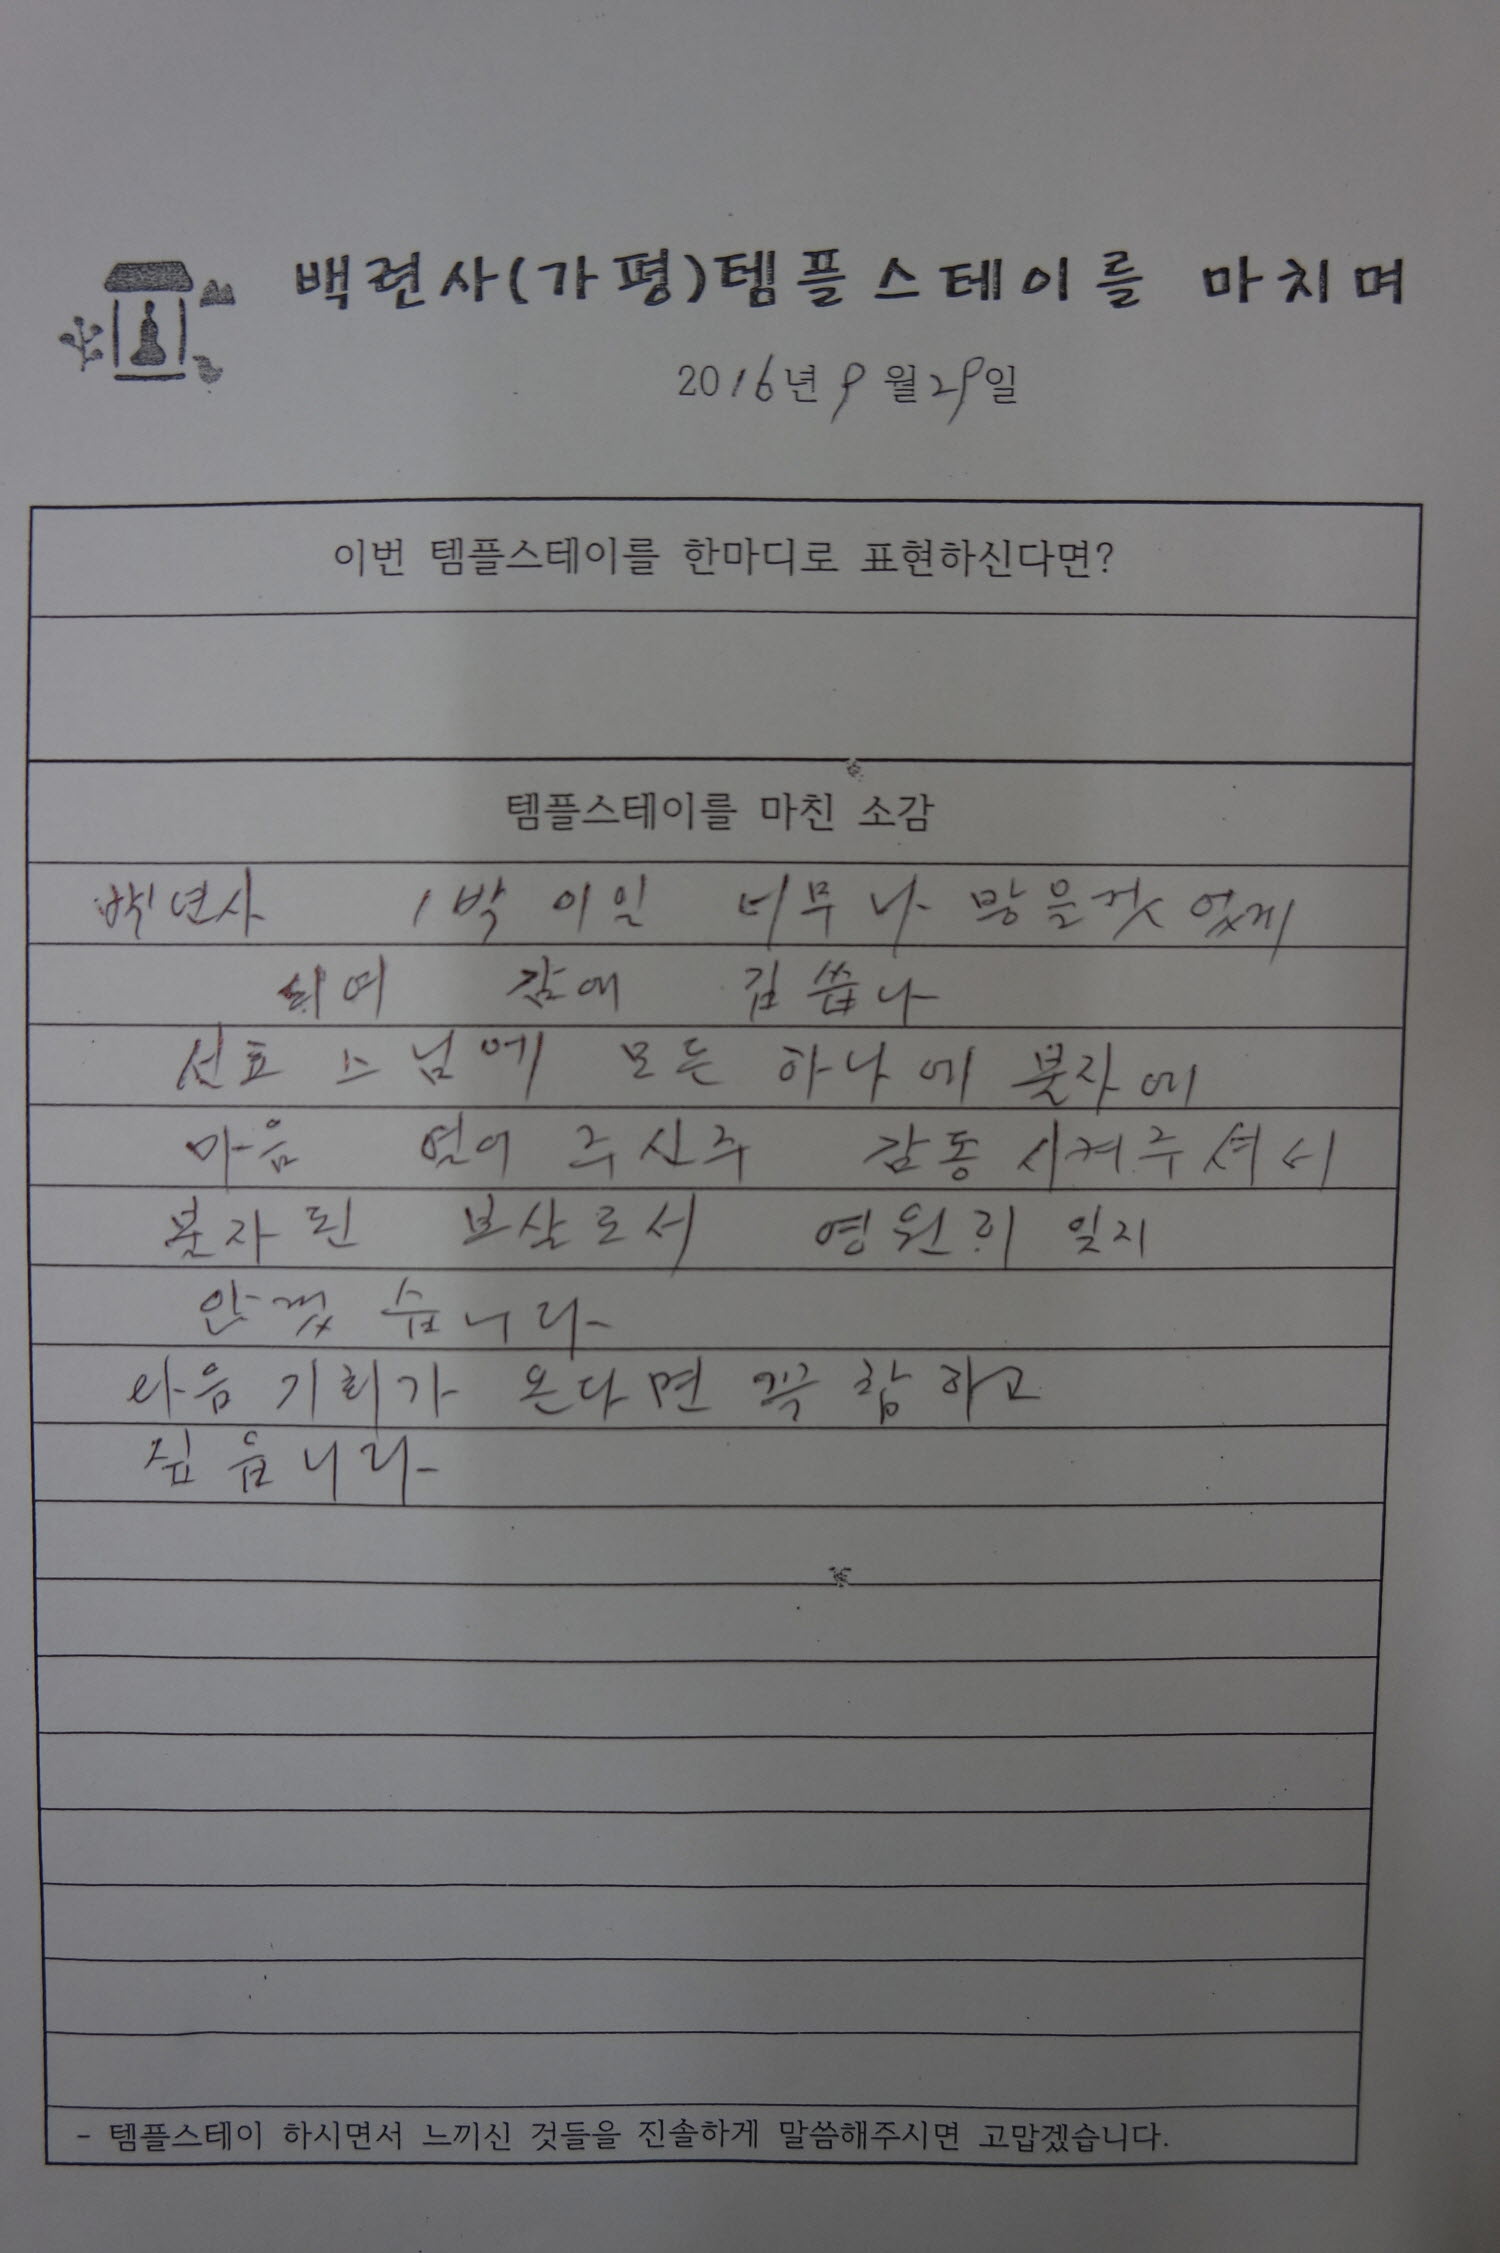 백련사(가평)템플스테이를 마치며
2016년 9월 29일
이번 템플스테이를 한마디로 표현하신다면?
템플스테이를 마친 소감
백년사 1박 이일 너무나 망을것 없게
감에
선효 스님에 모든 하나에 불자에
마음 얻어 주신주 감동시켜주셔서
불자된 보살로서 영원히 잊지
안겠습니다
다음 기회가 온다면 꼭 참하고
싶읍니다
- 템플스테이 하시면서 느끼신 것들을 진솔하게 말씀해주시면 고맙겠습니다.